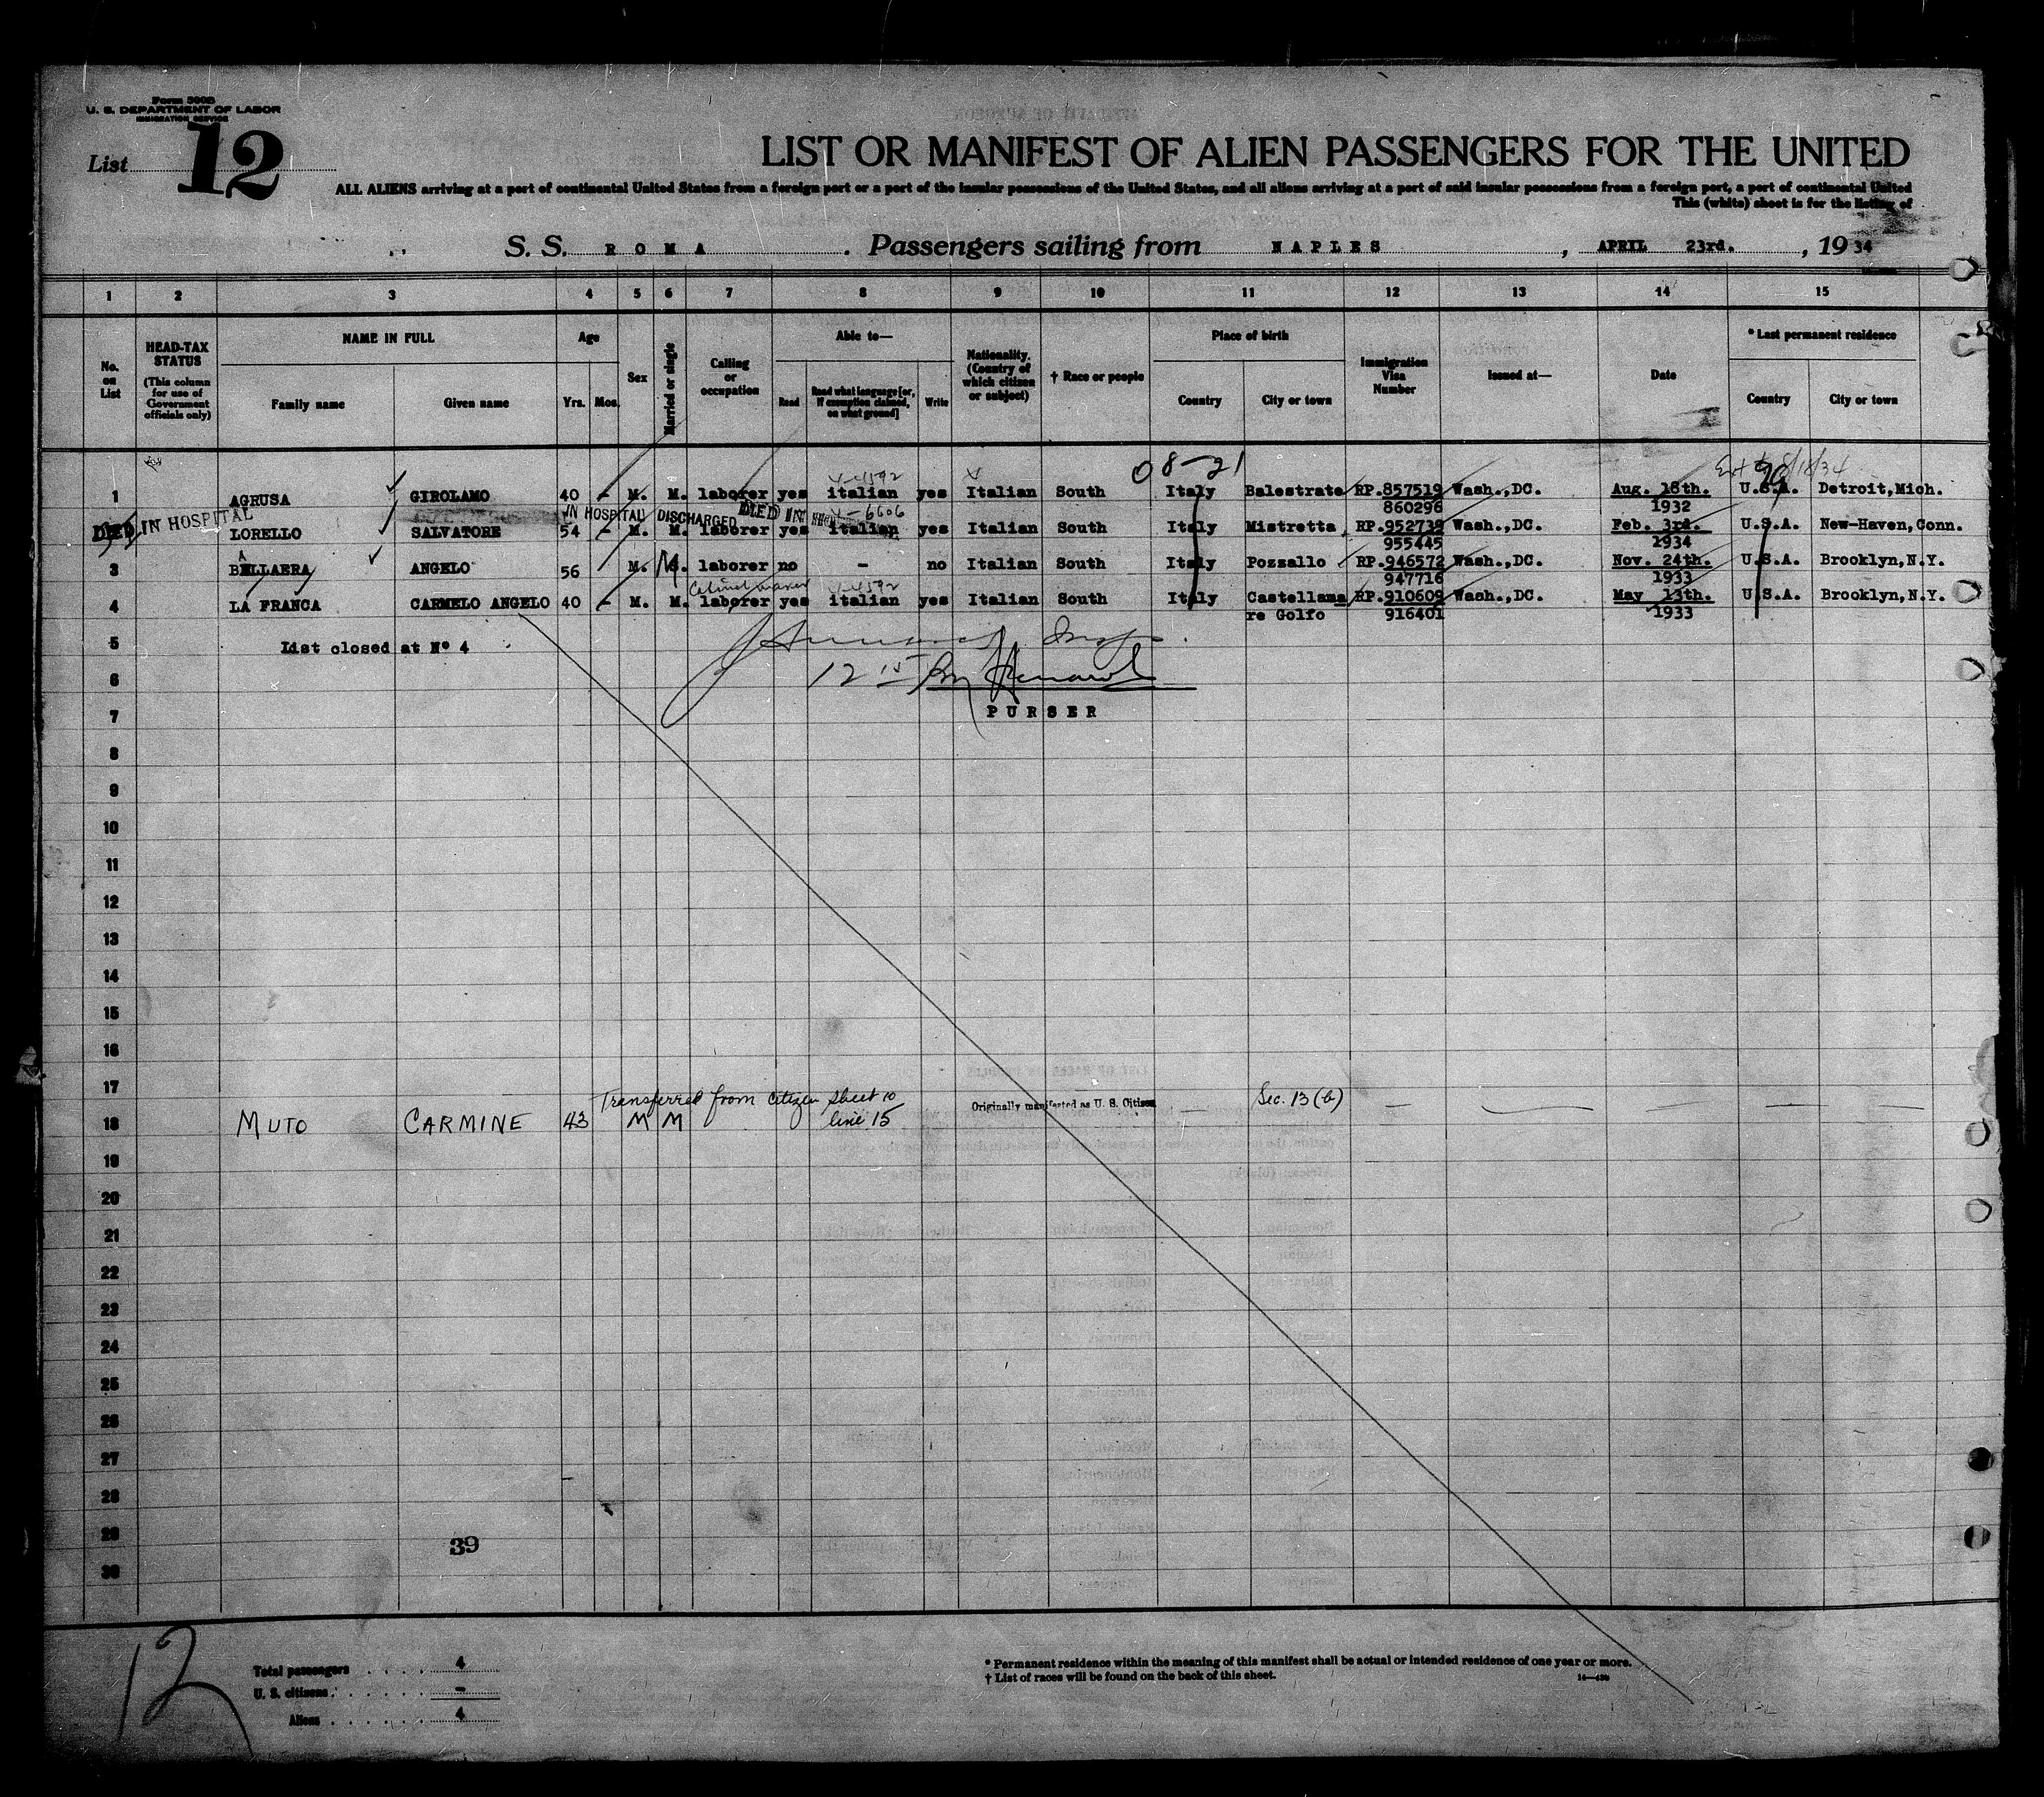 Form 500B
U. S. DEPARTMENT OF LABOR
IMMIGRATION SERVICE
List 12
LIST OR MANIFEST OF ALIEN PASSENGERS FOR THE UNITED
ALL ALIENS arriving at a port of continental United States from a foreign port or a port of the insular possessions of the United States, and all aliens arriving at a port of said insular possessions from a foreign port, a port of continental United
This (white) sheet is for the listing of
S. S. ROMA. Passengers sailing from NAPLES, APRIL 23rd., 1934
1 2 3 4 5 6 7 8 9 10 11 12 13 14 15
No. on List
HEAD-TAX STATUS (This column for use of Government officials only)
NAME IN FULL
Family name Given name
Age
Yrs. Mos.
Sex
Married or single
Calling or occupation
Able to—
Read Read what language [or, if exemption claimed, on what ground] Write
Nationality. (Country of which citizen or subject)
† Race or people
Place of birth
Country City or town
Immigration Visa Number
Issued at—
Date
* Last permanent residence
Country City or town
08-21
8/18/34
V-4592
1 AGRUSA GIROLAMO 40 - M. M. laborer yes italian yes Italian South Italy Balestrate RP.857519 Wash.,DC. Aug. 18th. U.S.A. Detroit,Mich.
860296 1932
DIED IN HOSPITAL
IN HOSPITAL DISCHARGED DIED IN
-6606
LORELLO SALVATORE 54 - M. M. laborer yes italian yes Italian South Italy Mistretta RP.952739 Wash.,DC. Feb. 3rd. U.S.A. New-Haven,Conn.
955445 1934
A
3 BELLAERA ANGELO 56 M. M. laborer no - no Italian South Italy Pozzallo RP.946572 Wash.,DC. Nov. 24th. U.S.A. Brooklyn,N.Y.
947716 1933
Cabinet maker V-4592
4 LA FRANCA CARMELO ANGELO 40 - M. M. laborer yes italian yes Italian South Italy Castellama RP.910609 Wash.,DC. May 13th. U.S.A. Brooklyn,N.Y.
re Golfo 916401 1933
5 List closed at Nº 4
6 12 15
7 PURSER
8
9
10
11
12
13
14
15
16
17
Transferred from Citizen sheet 10
line 15
Originally manifested as U. S. Citizen
Sec. 13 (b)
18 MUTO CARMINE 43 M M
19
20
21
22
23
24
25
26
27
28
29
39
30
12
Total passengers 4
U. S. citizens -
Aliens 4
* Permanent residence within the meaning of this manifest shall be actual or intended residence of one year or more.
† List of races will be found on the back of this sheet.